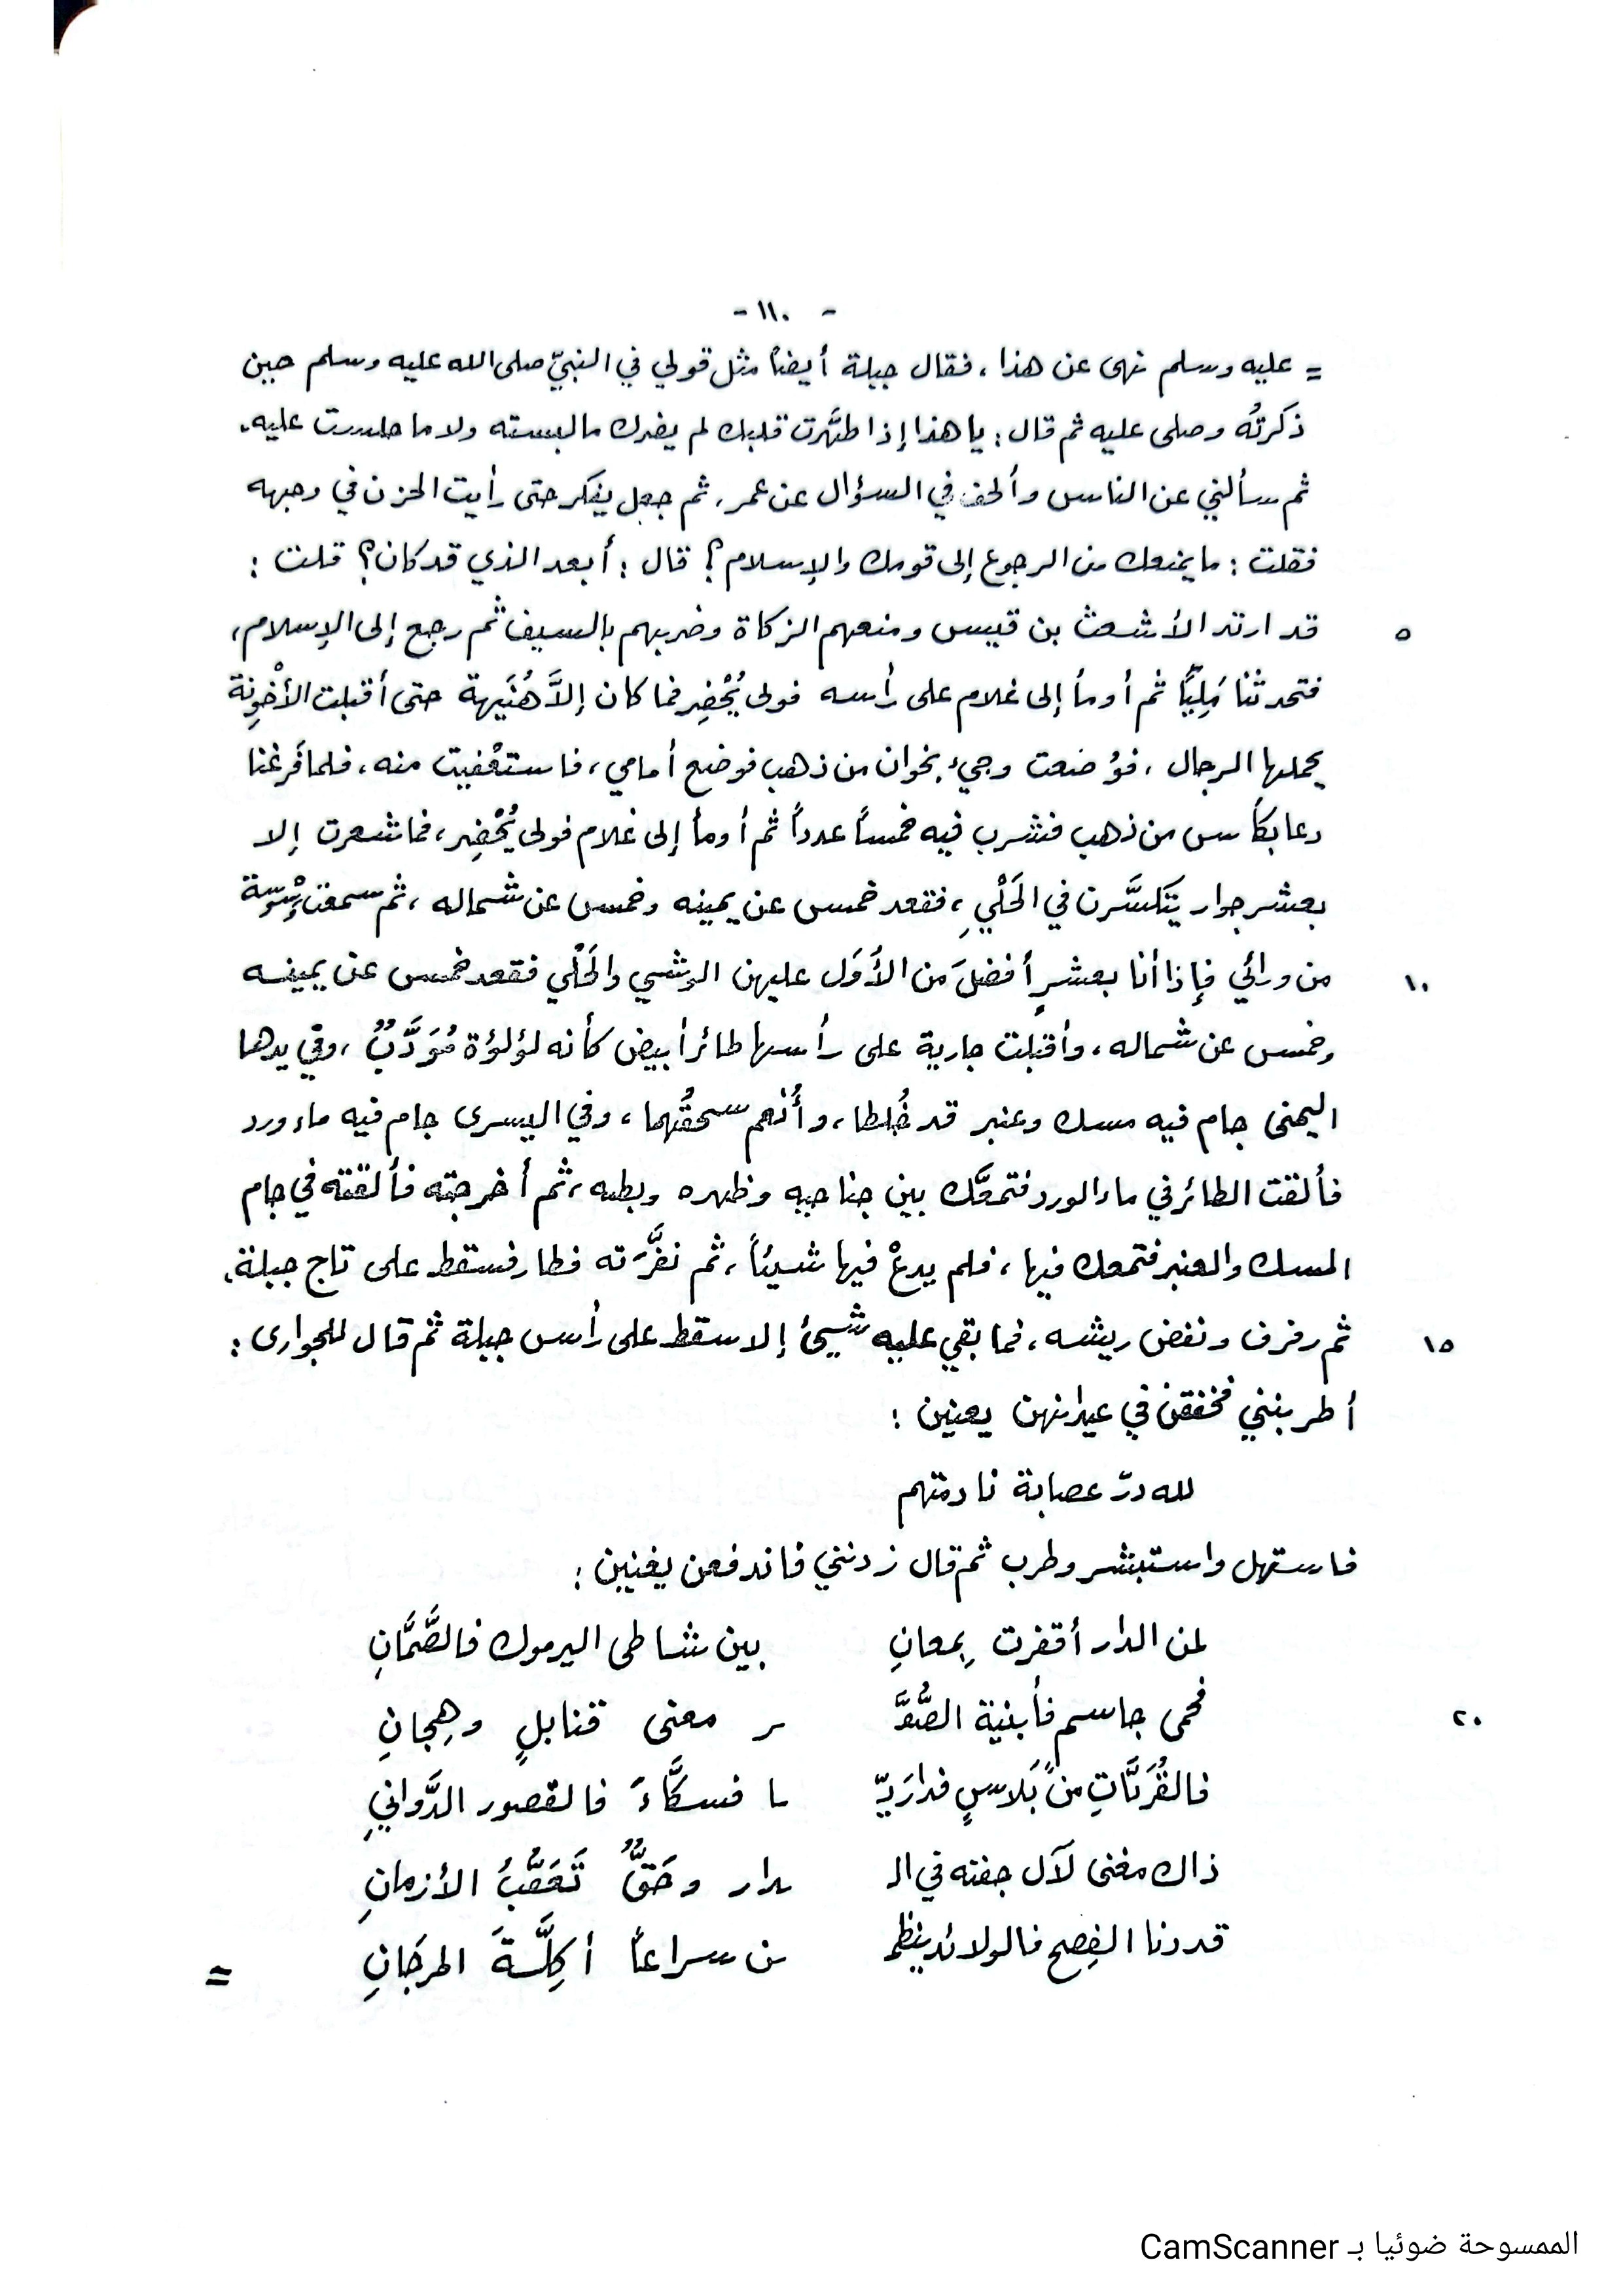 - ١١٠ -
= عليه وسلم نهى عن هذا، فقال جبلة أيضاً مثل قولي في النبيّ صلى الله عليه وسلم حين
ذكرتُه وصلى عليه ثم قال : يا هذا إذا طهَّرت قلبك لم يضرك ما لبسته ولا ما جلست عليه.
ثم سألني عن الناس وألحف في السؤال عن عمر، ثم جعل يفكر حتى رأيت الحزن في وجهه
فقلت : ما يمنعك من الرجوع إلى قومك والإسلام؟ قال : أبعد الذي قد كان؟ قلت :
٥ قد ارتد الأشعث بن قيس ومنعهم الزكاة وضربهم بالسيف ثم رجع إلى الإسلام،
فتحدثنا مَلِيًّا ثم أومأ إلى غلام على رأسه فولى يُحْضِر فما كان إلاَّ هُنَيهة حتى أقبلت الأخْوِنة
يحملها الرجال ، فوُضعت وجيء بخوان من ذهب فوضع أمامي، فاستعْفيت منه، فلما فَرغنا
دعا بكأس من ذهب فشرب فيه خمساً عدداً ثم أومأ إلى غلام فولى يُحْضِر، فما شعرت إلا
بعشر جوار يتكسَّرن في الحَلْيِ، فقعد خمس عن يمينه وخمس عن شماله ، ثم سمعت
من ورائي فإذا أنا بعشرٍ أفضلَ من الأُوَل عليهن الوشي والحَلْي فقعد خمس عن يمينه ١٠
وخمس عن شماله، وأقبلت جارية على رأسها طائر أبيض كأنه لؤلؤة مُوَدَّبٌ ، وفي يدها
اليمنى جام فيه مسك وعنبر قد خُلطا، وأُنعم سحقُهما، وفي اليسرى جام فيه ماء ورد
فألقت الطائر في ماء الورد فتمعَّك بين جناحيه وظهره وبطنه، ثم أخرجته فألقته في جام
المسك والعنبر فتمعك فيها، فلم يدعْ فيها شيئاً، ثم نفَّرَته فطار فسقط على تاج جبلة،
١٥ ثم رفرف ونفض ريشه، فما بقي عليه شيئ إلا سقط على رأس جبلة ثم قال للجوارى :
أطربنني فخفقن في عيدانهن يعنين :
لله درّ عصابة نادمتهم
فاستهل واستبشر وطرب ثم قال زدنني فاندفعن يغنين :
لمن الدار أقفرت بِمعانِ بين شاطى اليرموك فالصَّمَّانِ
٢٠ فحمى جاسم فأبنية الصُّفَّـ ـر معنى قنابلٍ وهِجانِ
فالقُرَيَّاتِ من بَلاسٍ فدارَيّـ ـا فسكَّاءَ فالقصور الدَّوانِي
ذاك مغنى لآل جفنه في الـ ـدار وحَقٌّ تَعَقُّبُ الأزمانِ
قد دنا الفِصح فالولائد ينظمـ ـن سراعاً أكِلَّةَ المرجَانِ
=
الممسوحة ضوئيا بـ CamScanner